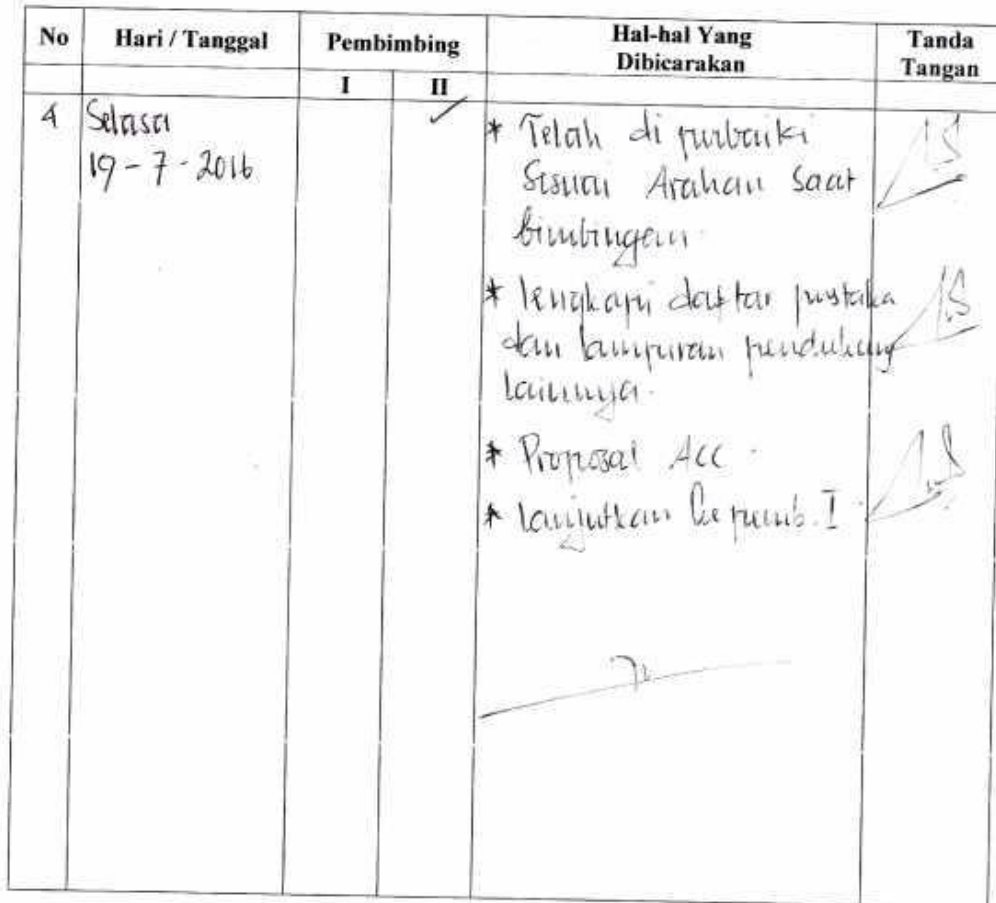 No Hari / Tanggal Pembimbing Hal-hal Yang Dibicarakan Tanda Tangan
I II
4 Selasa ✓ * Telah di perbaiki
19 - 7 - 2016 Sesuai Arahan saat
bimbingan.
* lengkapi daftar pustaka
dan lampiran pendukung
lainnya.
* Proposal Acc.
* lanjutkan ke pemb. I